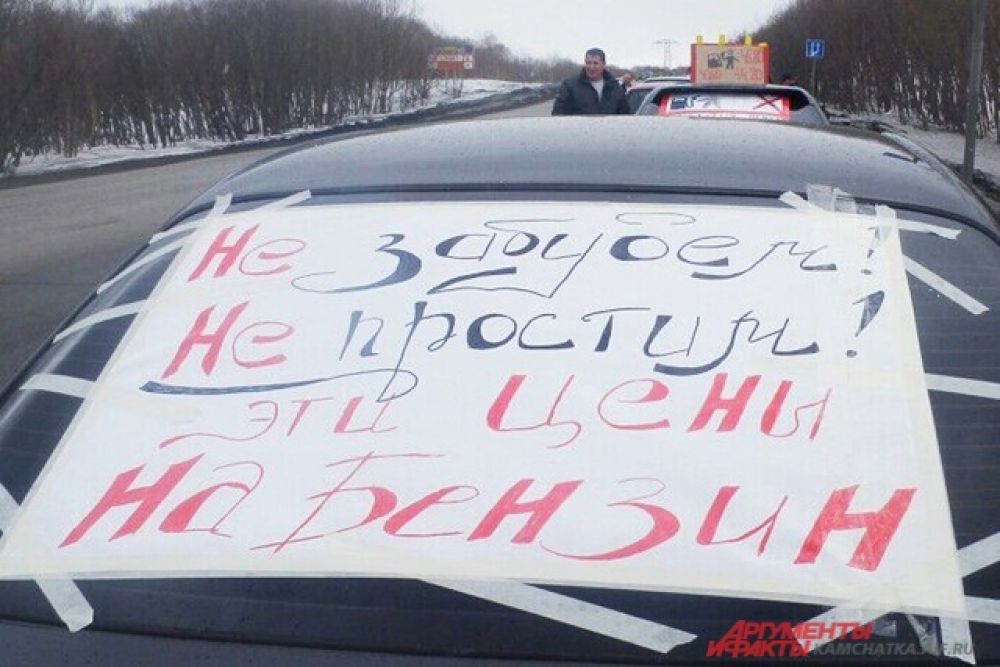 Не забудем!
Не простим!
эти цены
на бензин
АРГУМЕНТЫ
И ФАКТЫ
KAMCHATKA.AIF.RU